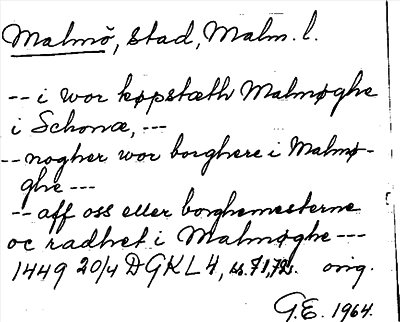 Malmö, stad, Malm. l.
-- i wor køpstæth Malmøghe
i Schonæ, ---
-- nogher wor borghere i Malmø-
ghe ---
-- aff oss eller borghemesterne
oc radhet i Malmøghe ---
1449 20/4 DGKL 4, ss. 71, 72. orig.
G.E. 1964.